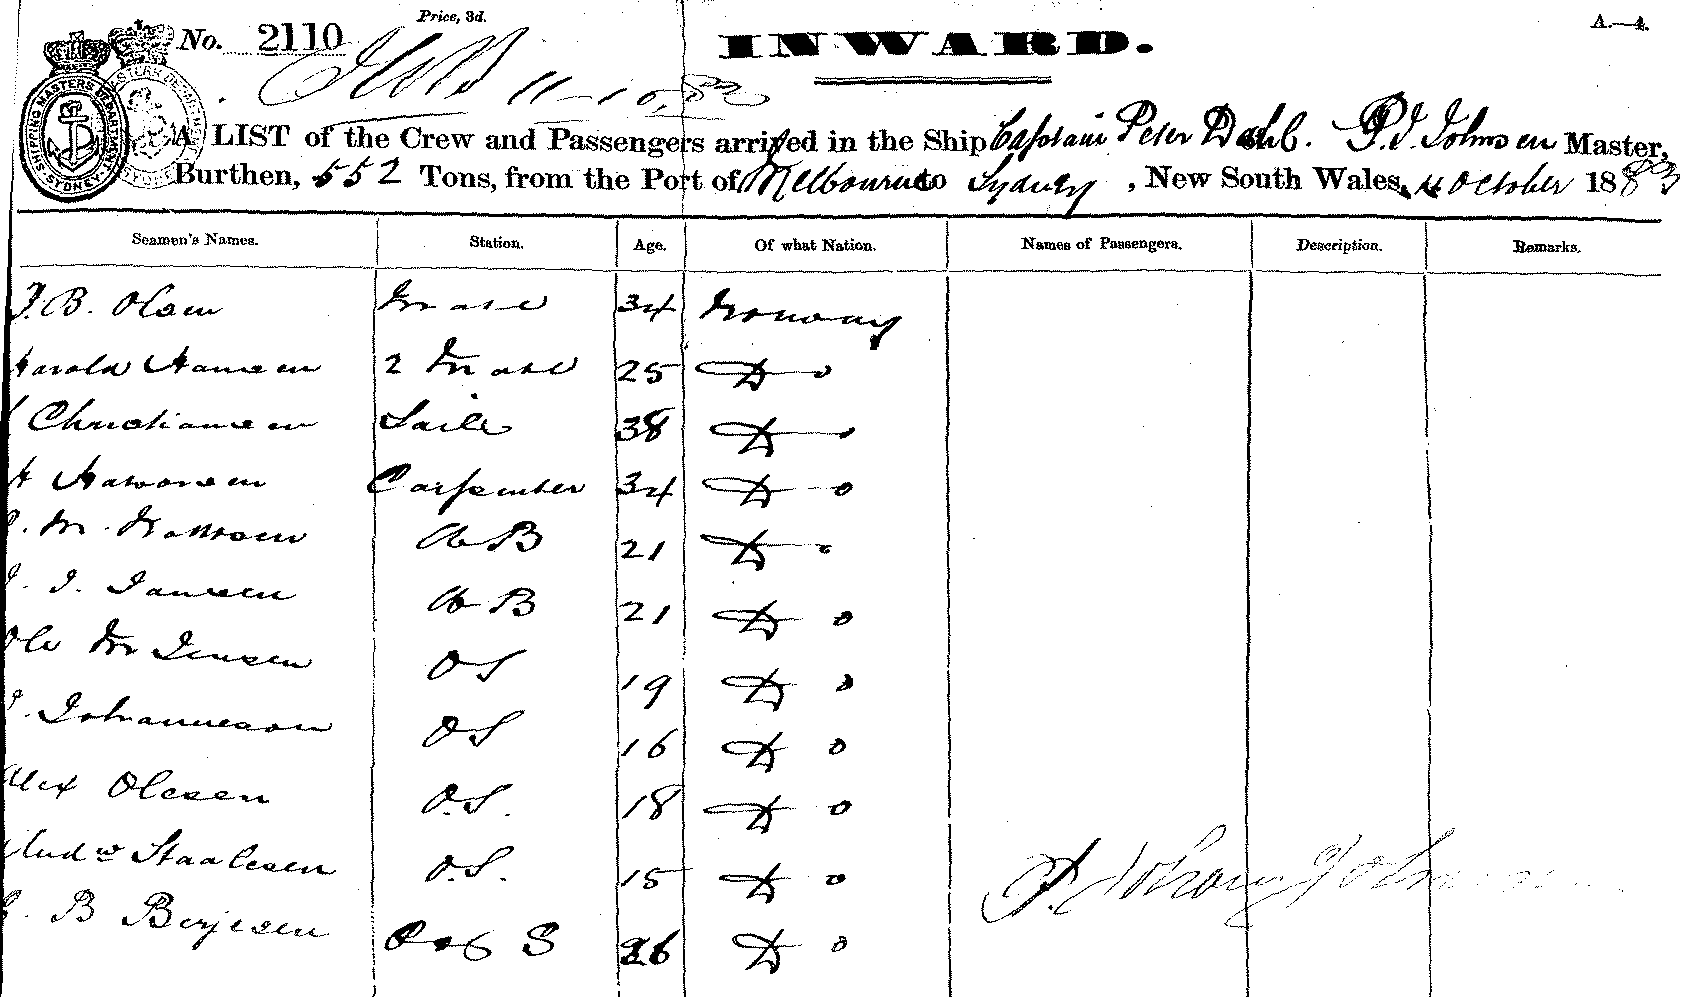 Price, 3d.
A.—4.
No. 2110
INWARD.
11-10-83
SHIPPING MASTERS DEPARTMENT SYDNEY
A LIST of the Crew and Passengers arrived in the Ship Captain Peter Dahl. P. J. Johnsen Master,
Burthen, 552 Tons, from the Port of Melbourne to Sydney, New South Wales, 11 October 1883
Seamen's Names. Station. Age. Of what Nation. Names of Passengers. Description. Remarks.
J. B. Olsen Mate 34 Norway
Harold Hansen 2 Mate 25 Do
Christiansen Sailr 38 Do
Carpenter 34 Do
M. AB 21 Do
J. Jansen AB 21 Do
Ole M Jensen OS 19 Do
Johannesson OS 16 Do
Alex Olesen O.S. 18 Do
Andw Staalesen O.S. 15 Do
B Borjesen S 26 Do